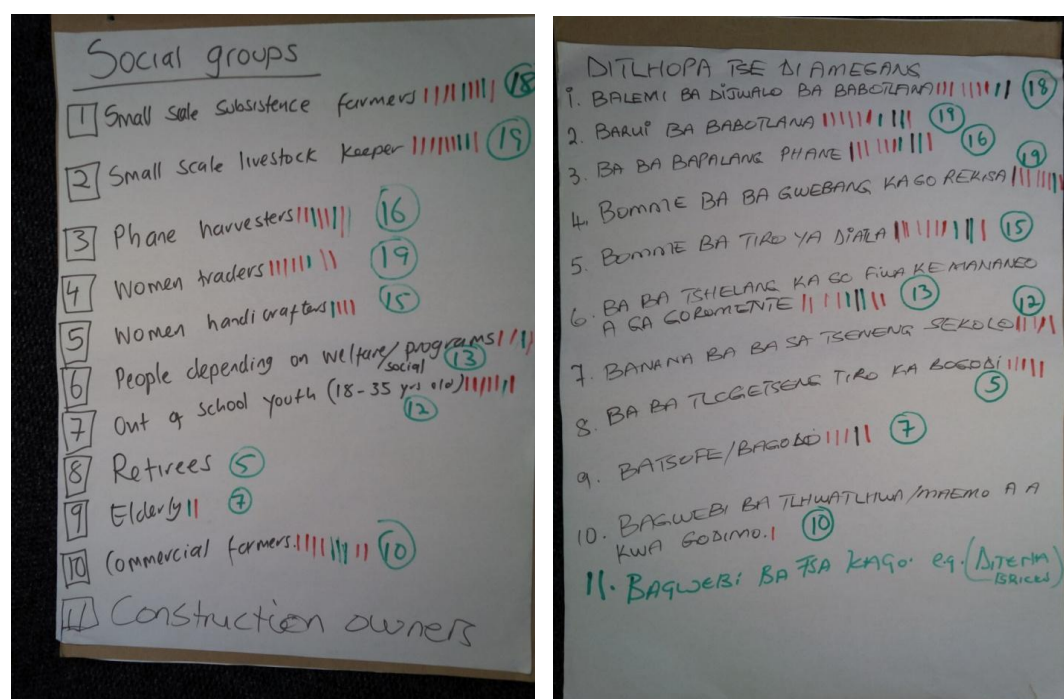 Social groups
1 Small scale subsistence farmers 18
2 Small scale livestock keeper 19
3 Phane harvesters 16
4 Women traders 19
5 Women handicrafters 15
6 People depending on welfare/social programs 13
7 Out of school youth (18-35 yrs old) 12
8 Retirees 5
9 Elderly 7
10 Commercial farmers. 10
11 Construction owners
DITLHOPA TSE DI AMEGANG
1. BALEMI BA DIJWALO BA BABOTLANA 18
2. BARUI BA BABOTLANA 19
3. BA BA BAPALANG PHANE 16
4. BOMME BA BA GWEBANG KA GO REKISA 19
5. BOMME BA TIRO YA DIATLA 15
6. BA BA TSHELANG KA GO FIWA KE MANANEO
A GA GOROMENTE 13
7. BANANA BA BA SA TSENENG SEKOLO 12
8. BA BA TLOGETSENG TIRO KA BOGODI 5
9. BATSOFE/BAGODI 7
10. BAGWEBI BA TLHWATLHWA/MAEMO A A
KWA GODIMO. 10
11. BAGWEBI BA TSA KAGO. e.g. (DITENA
BRICKS)